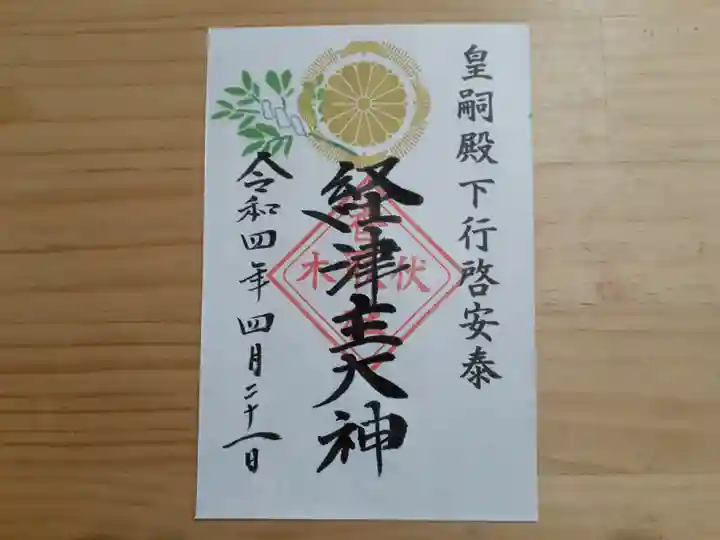 皇嗣殿下行啓安泰
経津主大神
木 伏
令和四年四月二十一日